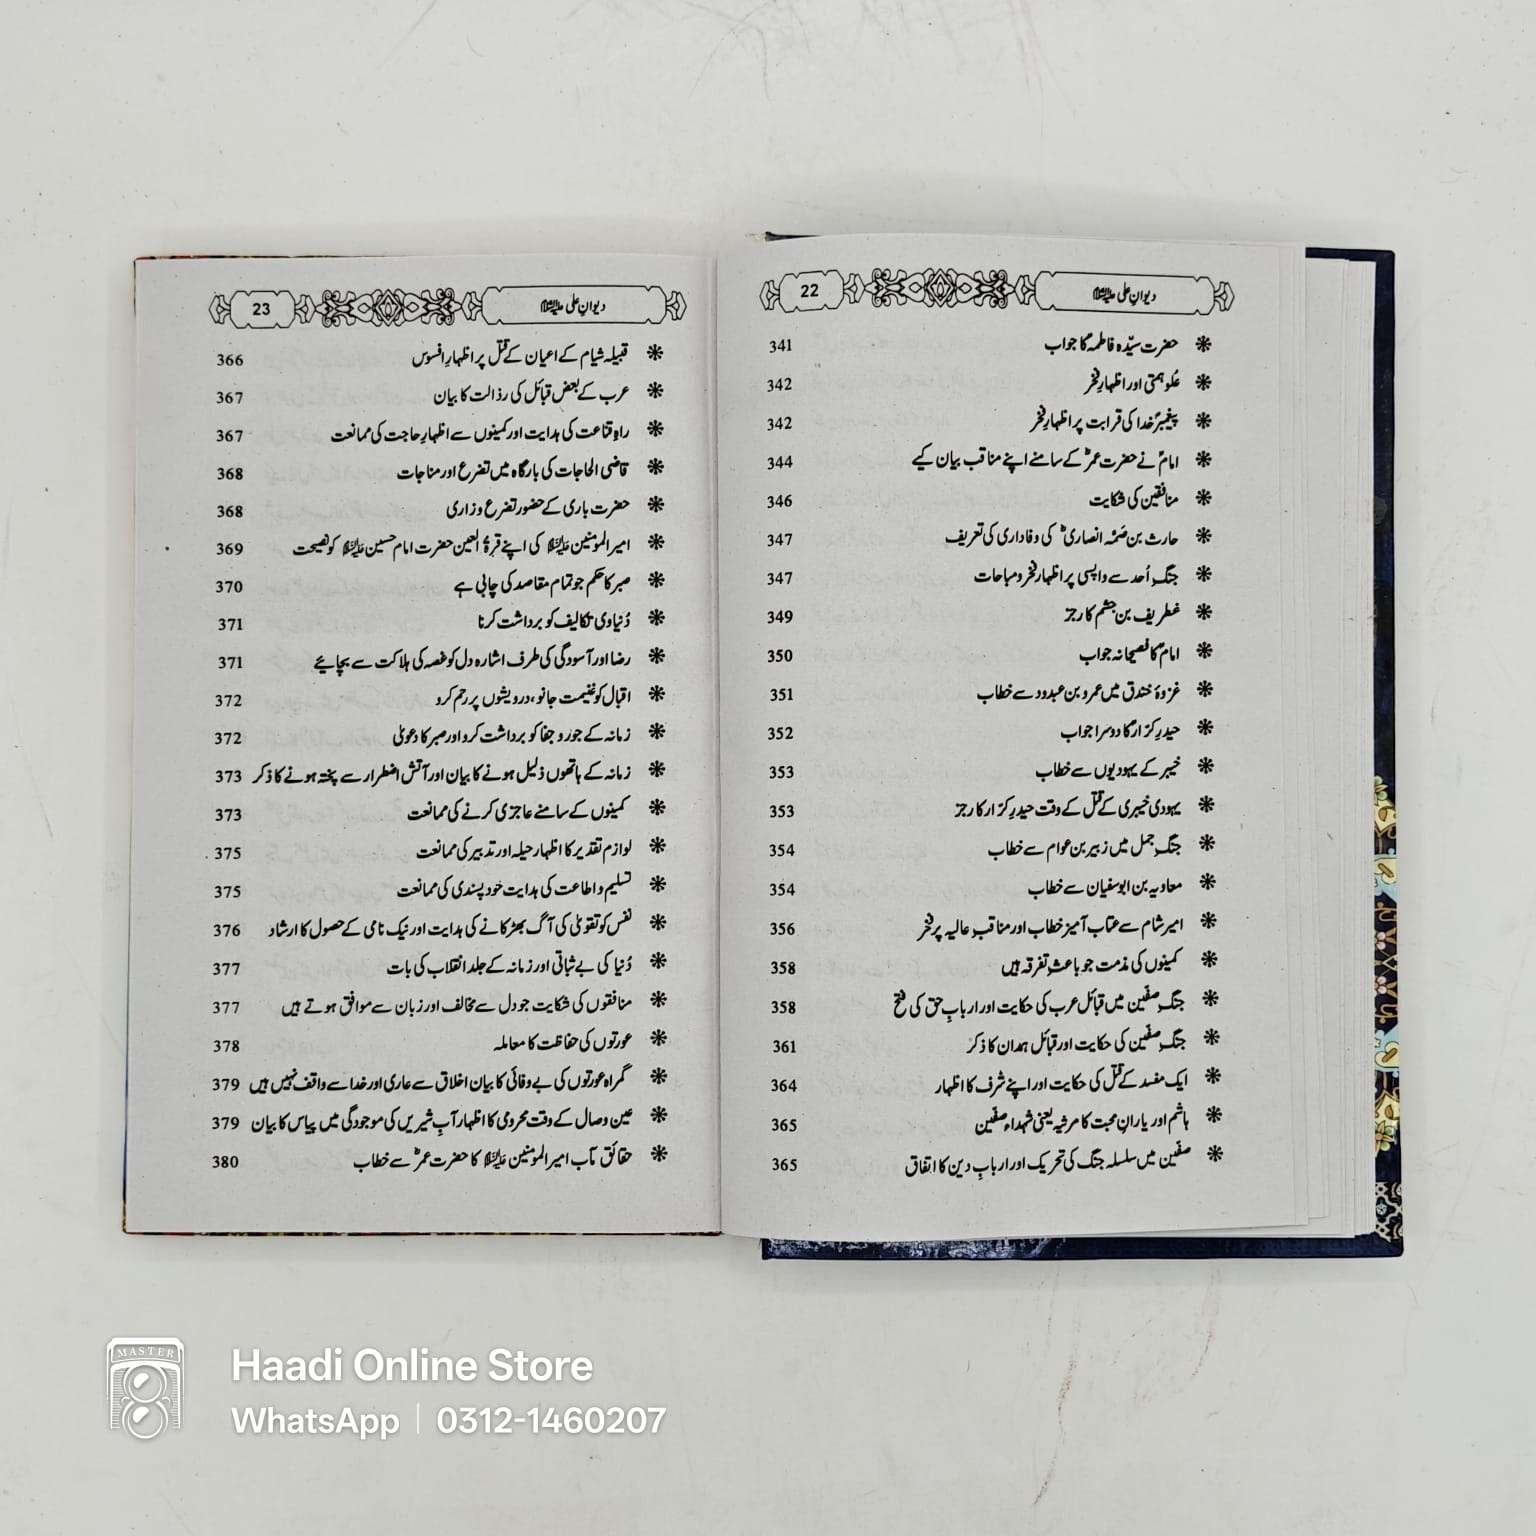 دیوانِ علی علیہ السلام 22
حضرت سیّدہ فاطمہؑ کا جواب 341
علوِ ہمتی اور اظہارِ فخر 342
پیغمبرِؐ خدا کی قرابت پر اظہارِ فخر 342
امامؑ نے حضرت عمرؓ کے سامنے اپنے مناقب بیان کیے 344
منافقین کی شکایت 346
حارث بن صَمّہ انصاریؓ کی وفاداری کی تعریف 347
جنگِ اُحد سے واپسی پر اظہارِ فخر و مباحات 347
غطریف بن جشم کا رجز 349
امامؑ کا فصیحانہ جواب 350
غزوۂ خندق میں عمرو بن عبدود سے خطاب 351
حیدرِ کرّارؑ کا دوسرا جواب 352
خیبر کے یہودیوں سے خطاب 353
یہودی خیبری کے قتل کے وقت حیدرِ کرّار کا رجز 353
جنگِ جمل میں زبیر بن عوام سے خطاب 354
معاویہ بن ابوسفیان سے خطاب 354
امیر شام سے عتاب آمیز خطاب اور مناقبِ عالیہ پر فخر 356
کمینوں کی مذمت جو باعثِ تفرقہ ہیں 358
جنگِ صفّین میں قبائل عرب کی حکایت اور اربابِ حق کی فتح 358
جنگِ صفّین کی حکایت اور قبائل ہمدان کا ذکر 361
ایک مفسد کے قتل کی حکایت اور اپنے شرف کا اظہار 364
ہاشم اور یارانِ محبت کا مرثیہ یعنی شہداء صفّین 365
صفّین میں سلسلہ جنگ کی تحریک اور اربابِ دین کا اتفاق 365
دیوانِ علی علیہ السلام 23
قبیلہ شیام کے اعیان کے قتل پر اظہارِ افسوس 366
عرب کے بعض قبائل کی رذالت کا بیان 367
راہِ قناعت کی ہدایت اور کمینوں سے اظہارِ حاجت کی ممانعت 367
قاضی الحاجات کی بارگاہ میں تضرع اور مناجات 368
حضرت باری کے حضور تضرع و زاری 368
امیر المومنین علیہ السلام کی اپنے قرۃ العین حضرت امام حسین علیہ السلام کو نصیحت 369
صبر کا حکم جو تمام مقاصد کی چابی ہے 370
دُنیاوی تکالیف کو برداشت کرنا 371
رضا اور آسودگی کی طرف اشارہ دل کو غصہ کی ہلاکت سے بچائیے 371
اقبال کو غنیمت جانو، درویشوں پر رحم کرو 372
زمانہ کے جور و جفا کو برداشت کرو اور صبر کا دعویٰ 372
زمانہ کے ہاتھوں ذلیل ہونے کا بیان اور آتش اضطرار سے پختہ ہونے کا ذکر 373
کمینوں کے سامنے عاجزی کرنے کی ممانعت 373
لوازم تقدیر کا اظہار حیلہ اور تدبیر کی ممانعت 375
تسلیم و اطاعت کی ہدایت خود پسندی کی ممانعت 375
نفس کو تقویٰ کی آگ بھڑکانے کی ہدایت اور نیک نامی کے حصول کا ارشاد 376
دُنیا کی بے ثباتی اور زمانہ کے جلد انقلاب کی بات 377
منافقوں کی شکایت جو دل سے مخالف اور زبان سے موافق ہوتے ہیں 377
عورتوں کی حفاظت کا معاملہ 378
گمراہ عورتوں کی بے وفائی کا بیان اخلاق سے عاری اور خدا سے واقف نہیں ہیں 379
عین وصال کے وقت محرومی کا اظہار آبِ شیریں کی موجودگی میں پیاس کا بیان 379
حقائق مآب امیر المومنین علیہ السلام کا حضرت عمرؓ سے خطاب 380
MASTER
Haadi Online Store
WhatsApp | 0312-1460207